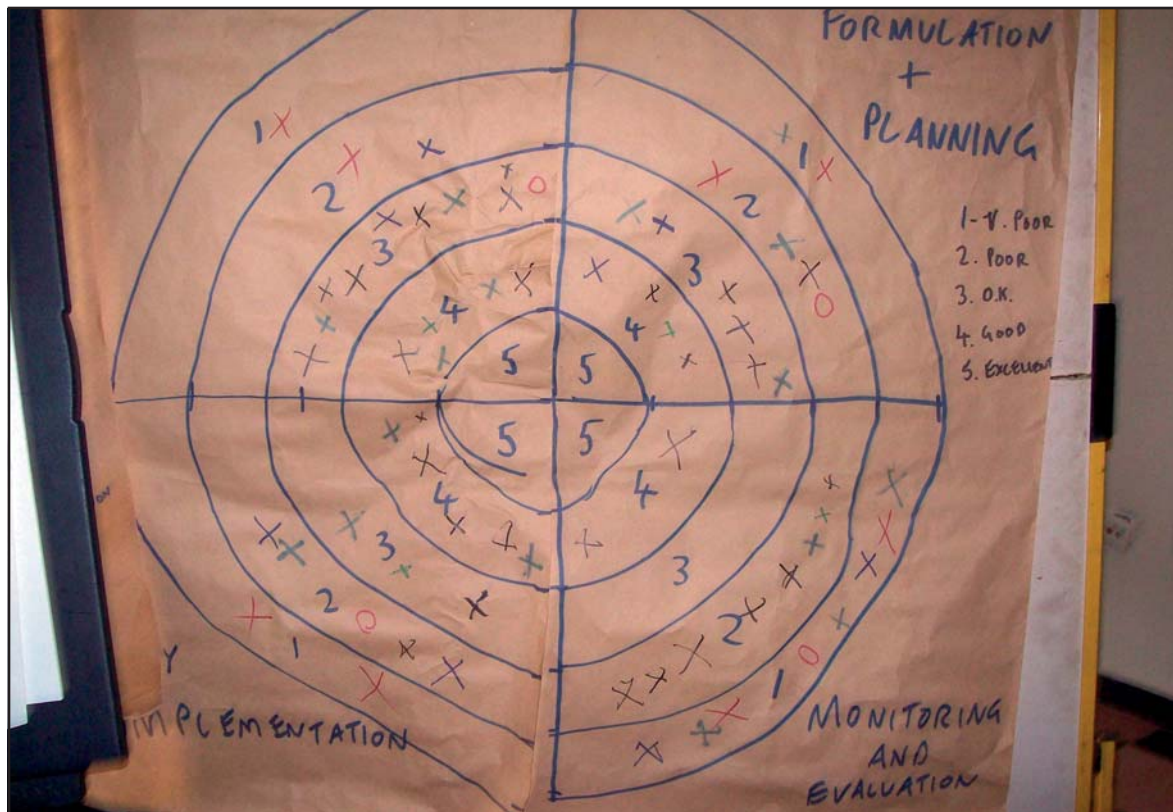 FORMULATION
+
PLANNING
1-V. POOR
2. POOR
3. O.K.
4. GOOD
5. EXCELLENT
1
2
3
4
5
1
2
3
4
5
5
4
3
2
1
5
4
3
2
1
Y
IMPLEMENTATION
MONITORING
AND
EVALUATION